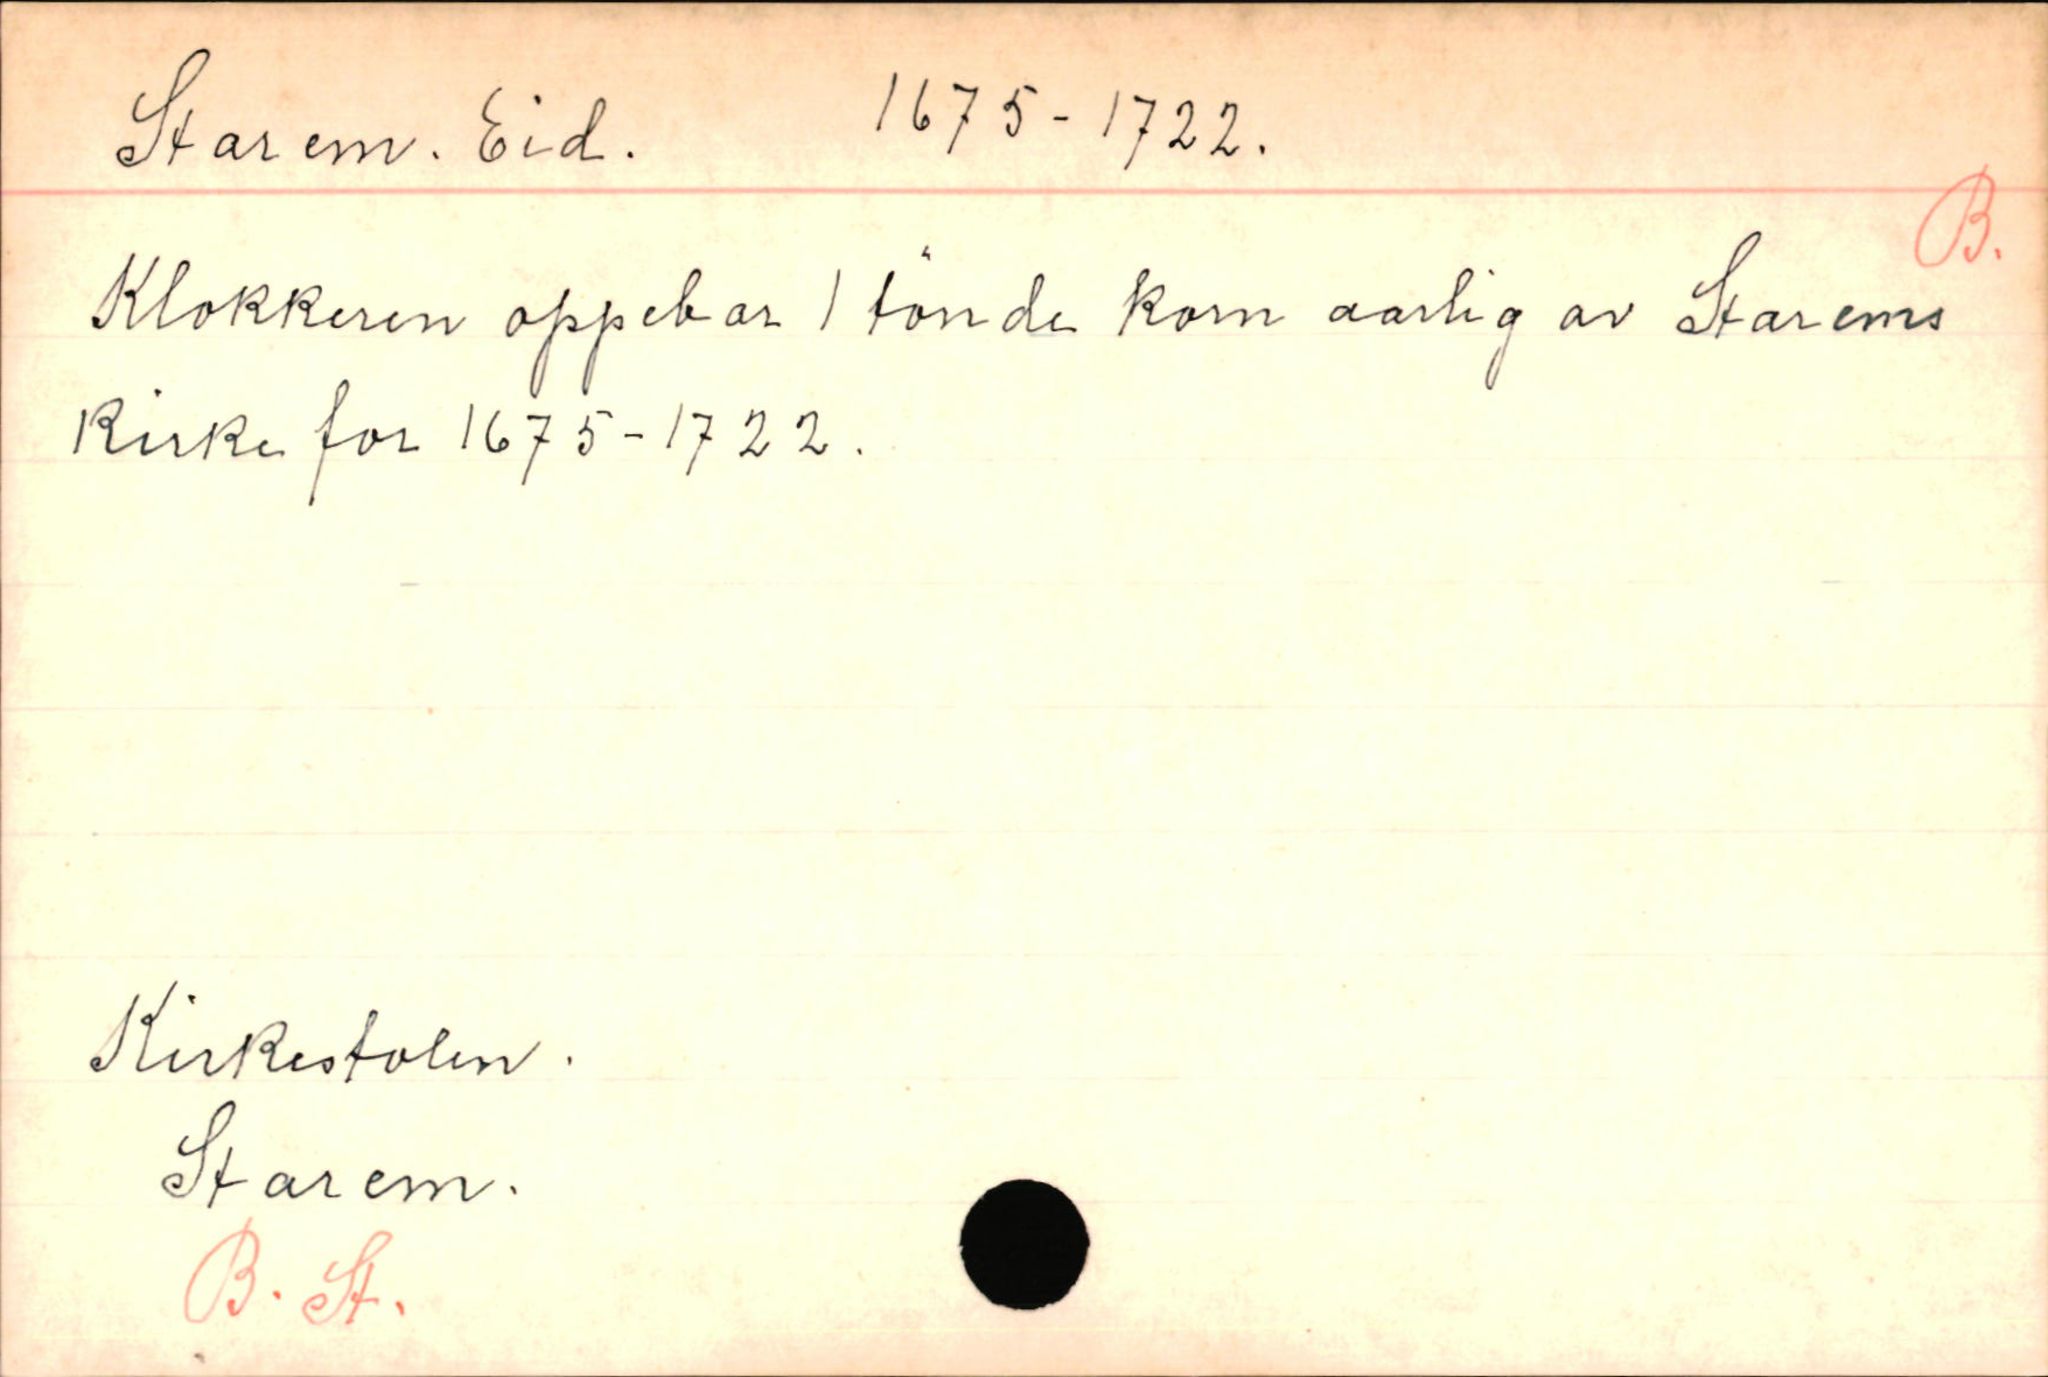 Starem. Eid. 1675-1722.
B.
Klokkeren oppebar 1 tönde korn aarlig av Starems
kirke for 1675-1722.
Kirkestolen.
Starem.
B. St.